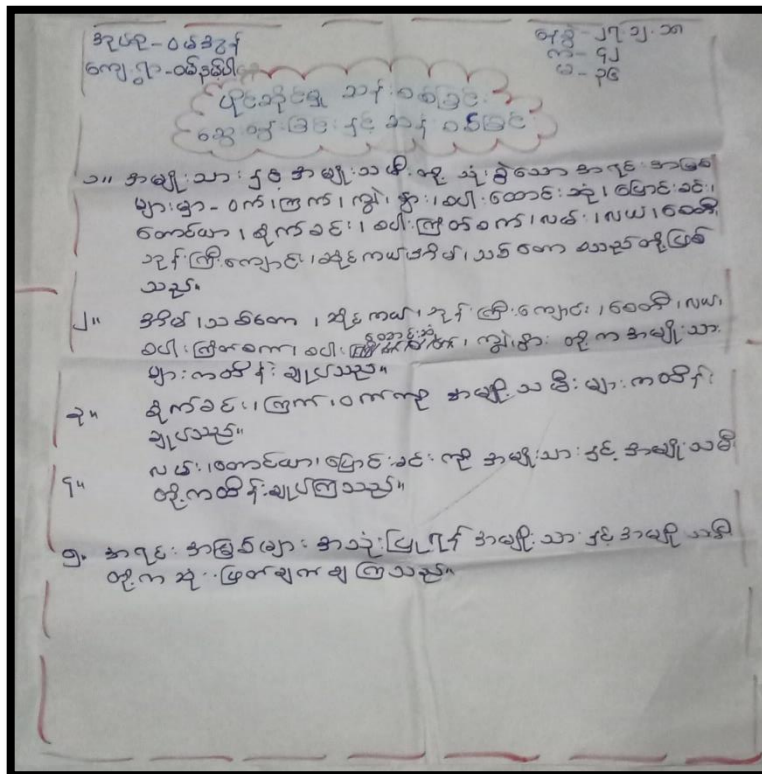 အုပ်စု - ဝမ်အွန်
ကျေးရွာ - ဝမ်နမ့်ပါ
နေ့စွဲ - ၂၇.၁၂.၁၈
က - ၄၂
မ - ၃၆
ပိုင်ဆိုင်မှု ဆန်းစစ်ခြင်း
ဆွေးနွေးခြင်းနှင့် ဆန်းစစ်ခြင်း
၁။ အမျိုးသားနှင့် အမျိုးသမီးတို့ သုံးစွဲသော အရင်းအမြစ်
များမှာ - ဝက်၊ ကြက်၊ ကျွဲ၊ နွား၊ စပါးထောင်းဆုံ၊ ပြောင်းခင်း၊
တောင်ယာ၊ စိုက်ခင်း၊ စပါးကြိတ်စက်၊ လမ်း၊ လယ်၊ စေတီ
ဘုန်းကြီးကျောင်း၊ ဆိုင်ကယ်၊ အိမ်၊ သစ်တော စသည်တို့ဖြစ်
သည်။
၂။ အိမ်၊ သစ်တော၊ ဆိုင်ကယ်၊ ဘုန်းကြီးကျောင်း၊ စေတီ၊ လယ်၊
စပါးကြိတ်စက်၊ စပါးထောင်းဆုံ၊ ကျွဲ၊ နွား တို့က အမျိုးသား
များကထိန်းချုပ်သည်။
၃။ စိုက်ခင်း၊ ကြက်၊ ဝက်ကို အမျိုးသမီးများကထိန်း
ချုပ်သည်။
၄။ လမ်း၊ တောင်ယာ၊ ပြောင်းခင်းကို အမျိုးသားနှင့် အမျိုးသမီး
တို့ကထိန်းချုပ်ကြသည်။
၅. အရင်းအမြစ်များ အသုံးပြုရန် အမျိုးသားနှင့် အမျိုးသမီး
တို့က ဆုံးဖြတ်ချက်ချကြသည်။